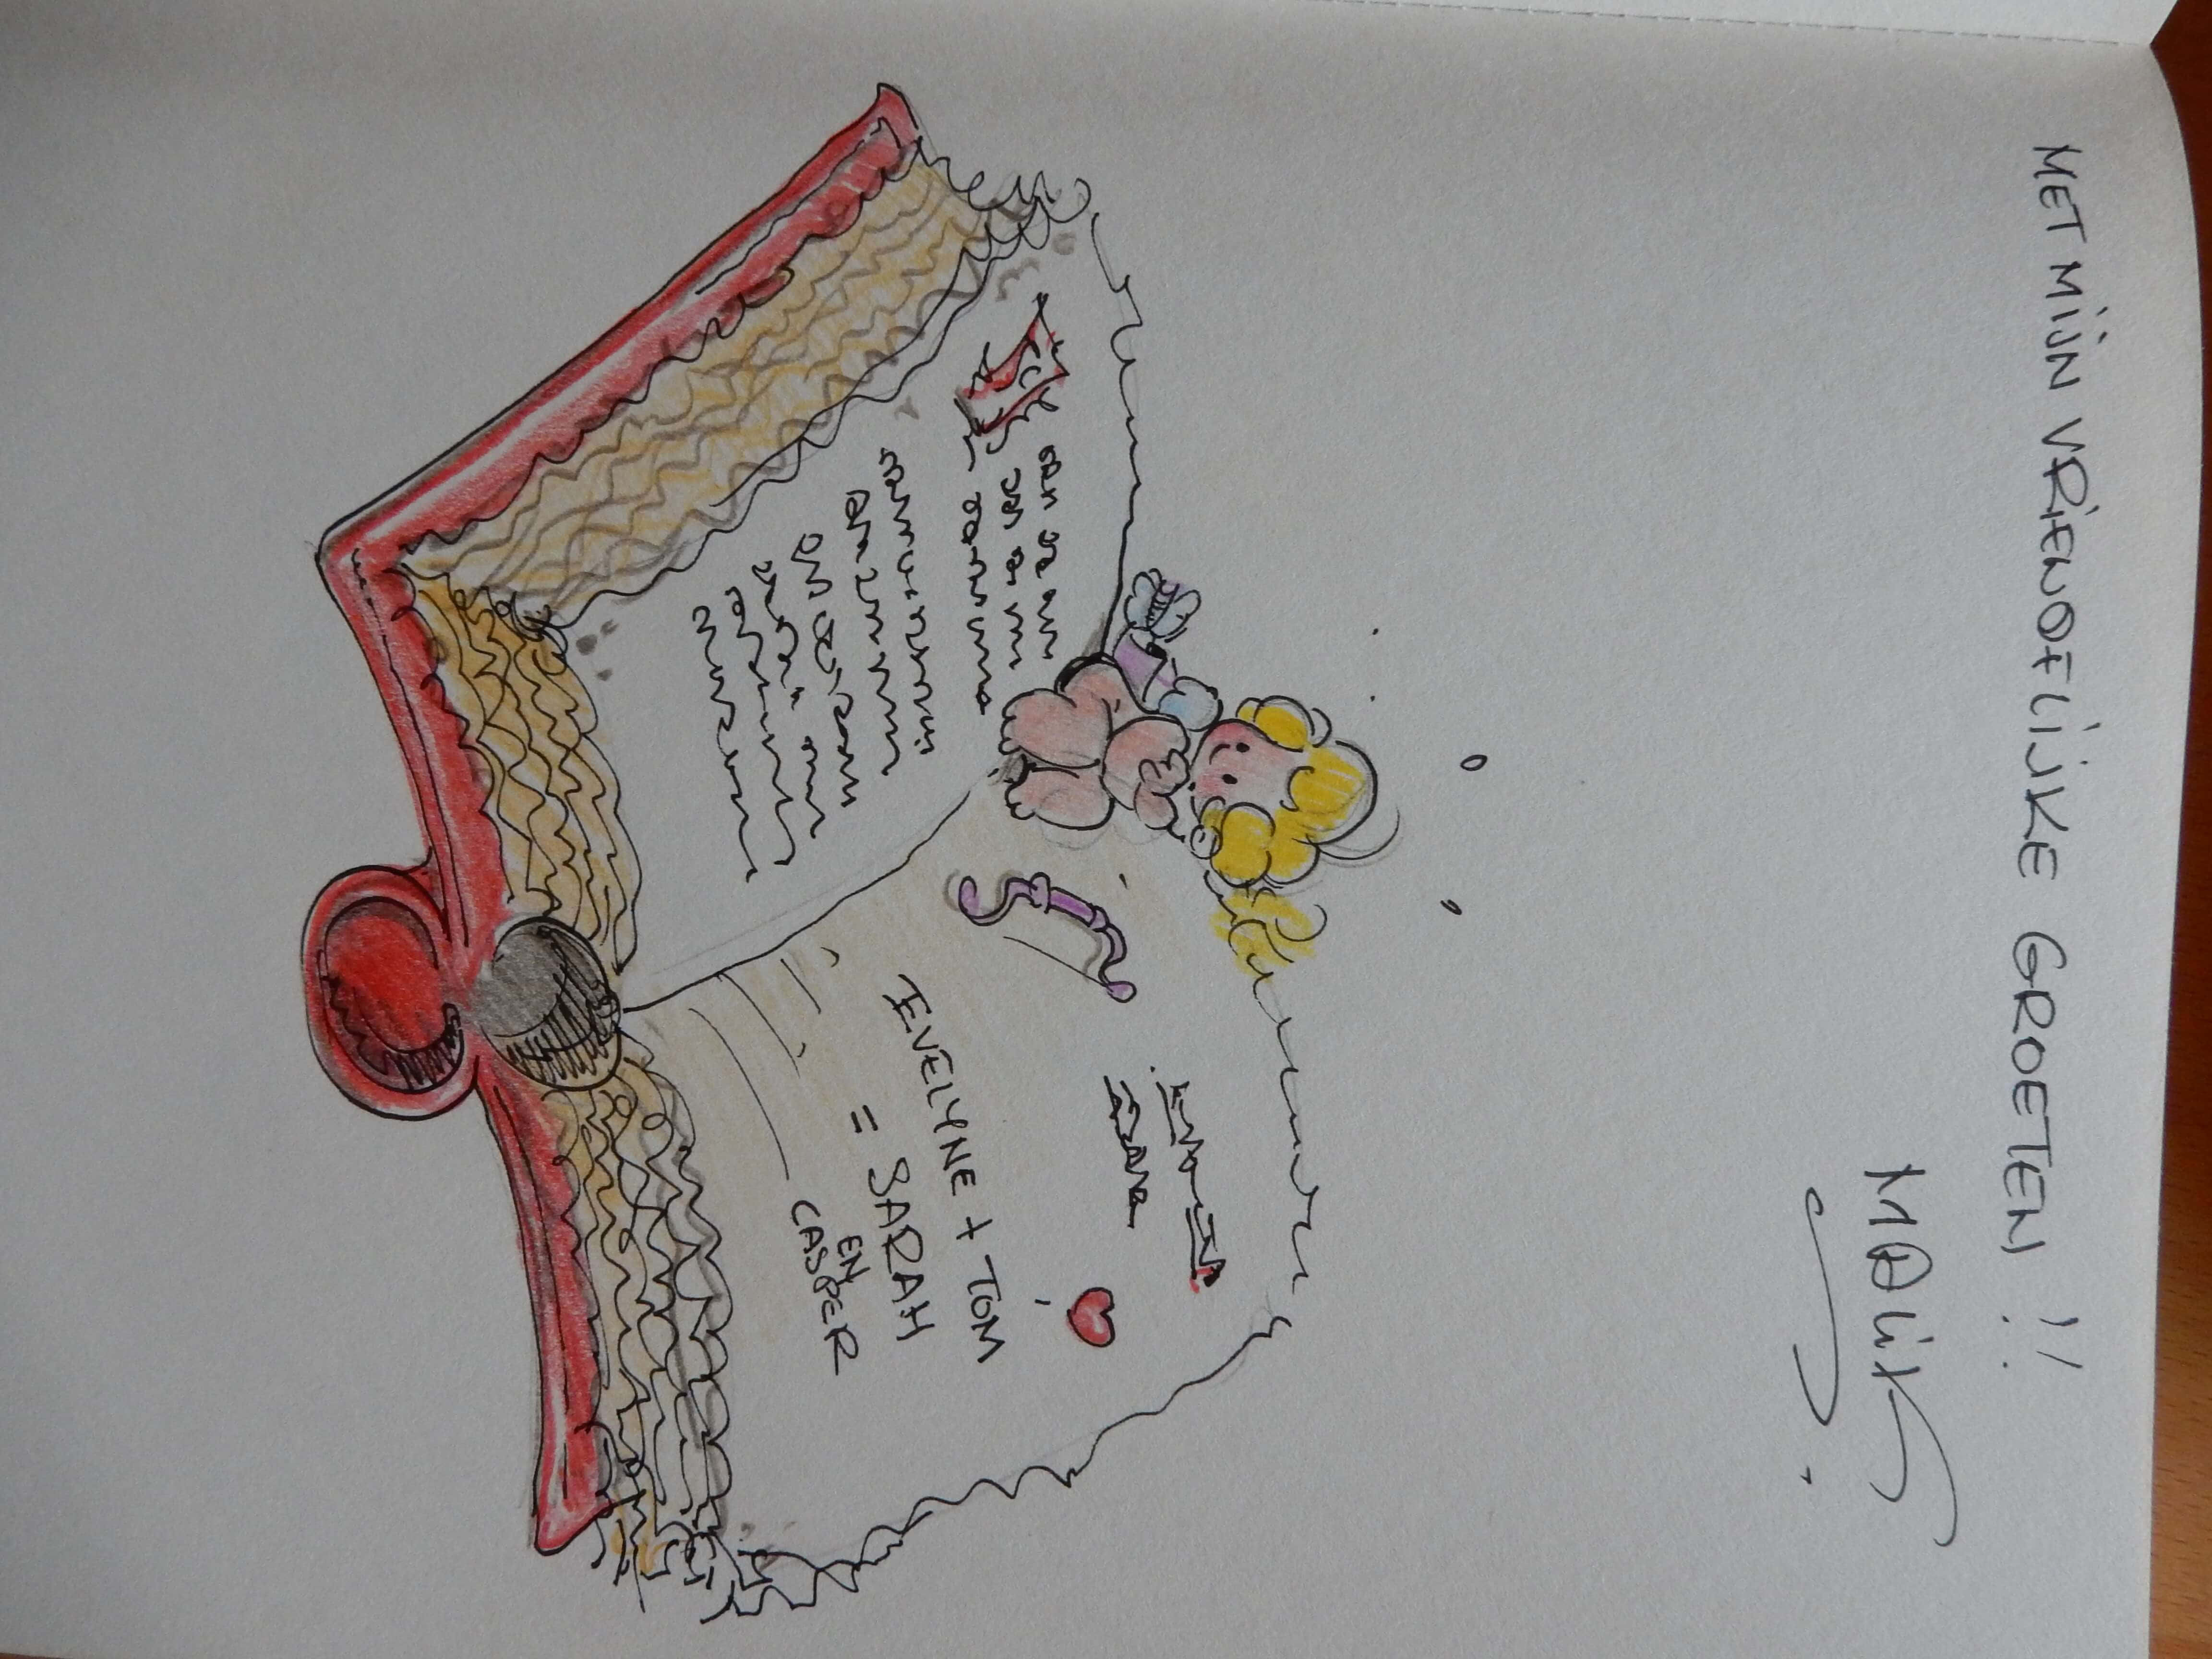 MET MIJN VRIENDELIJKE GROETEN !!
MALIK
EVELYNE + TOM
= SARAH
EN
CASPER